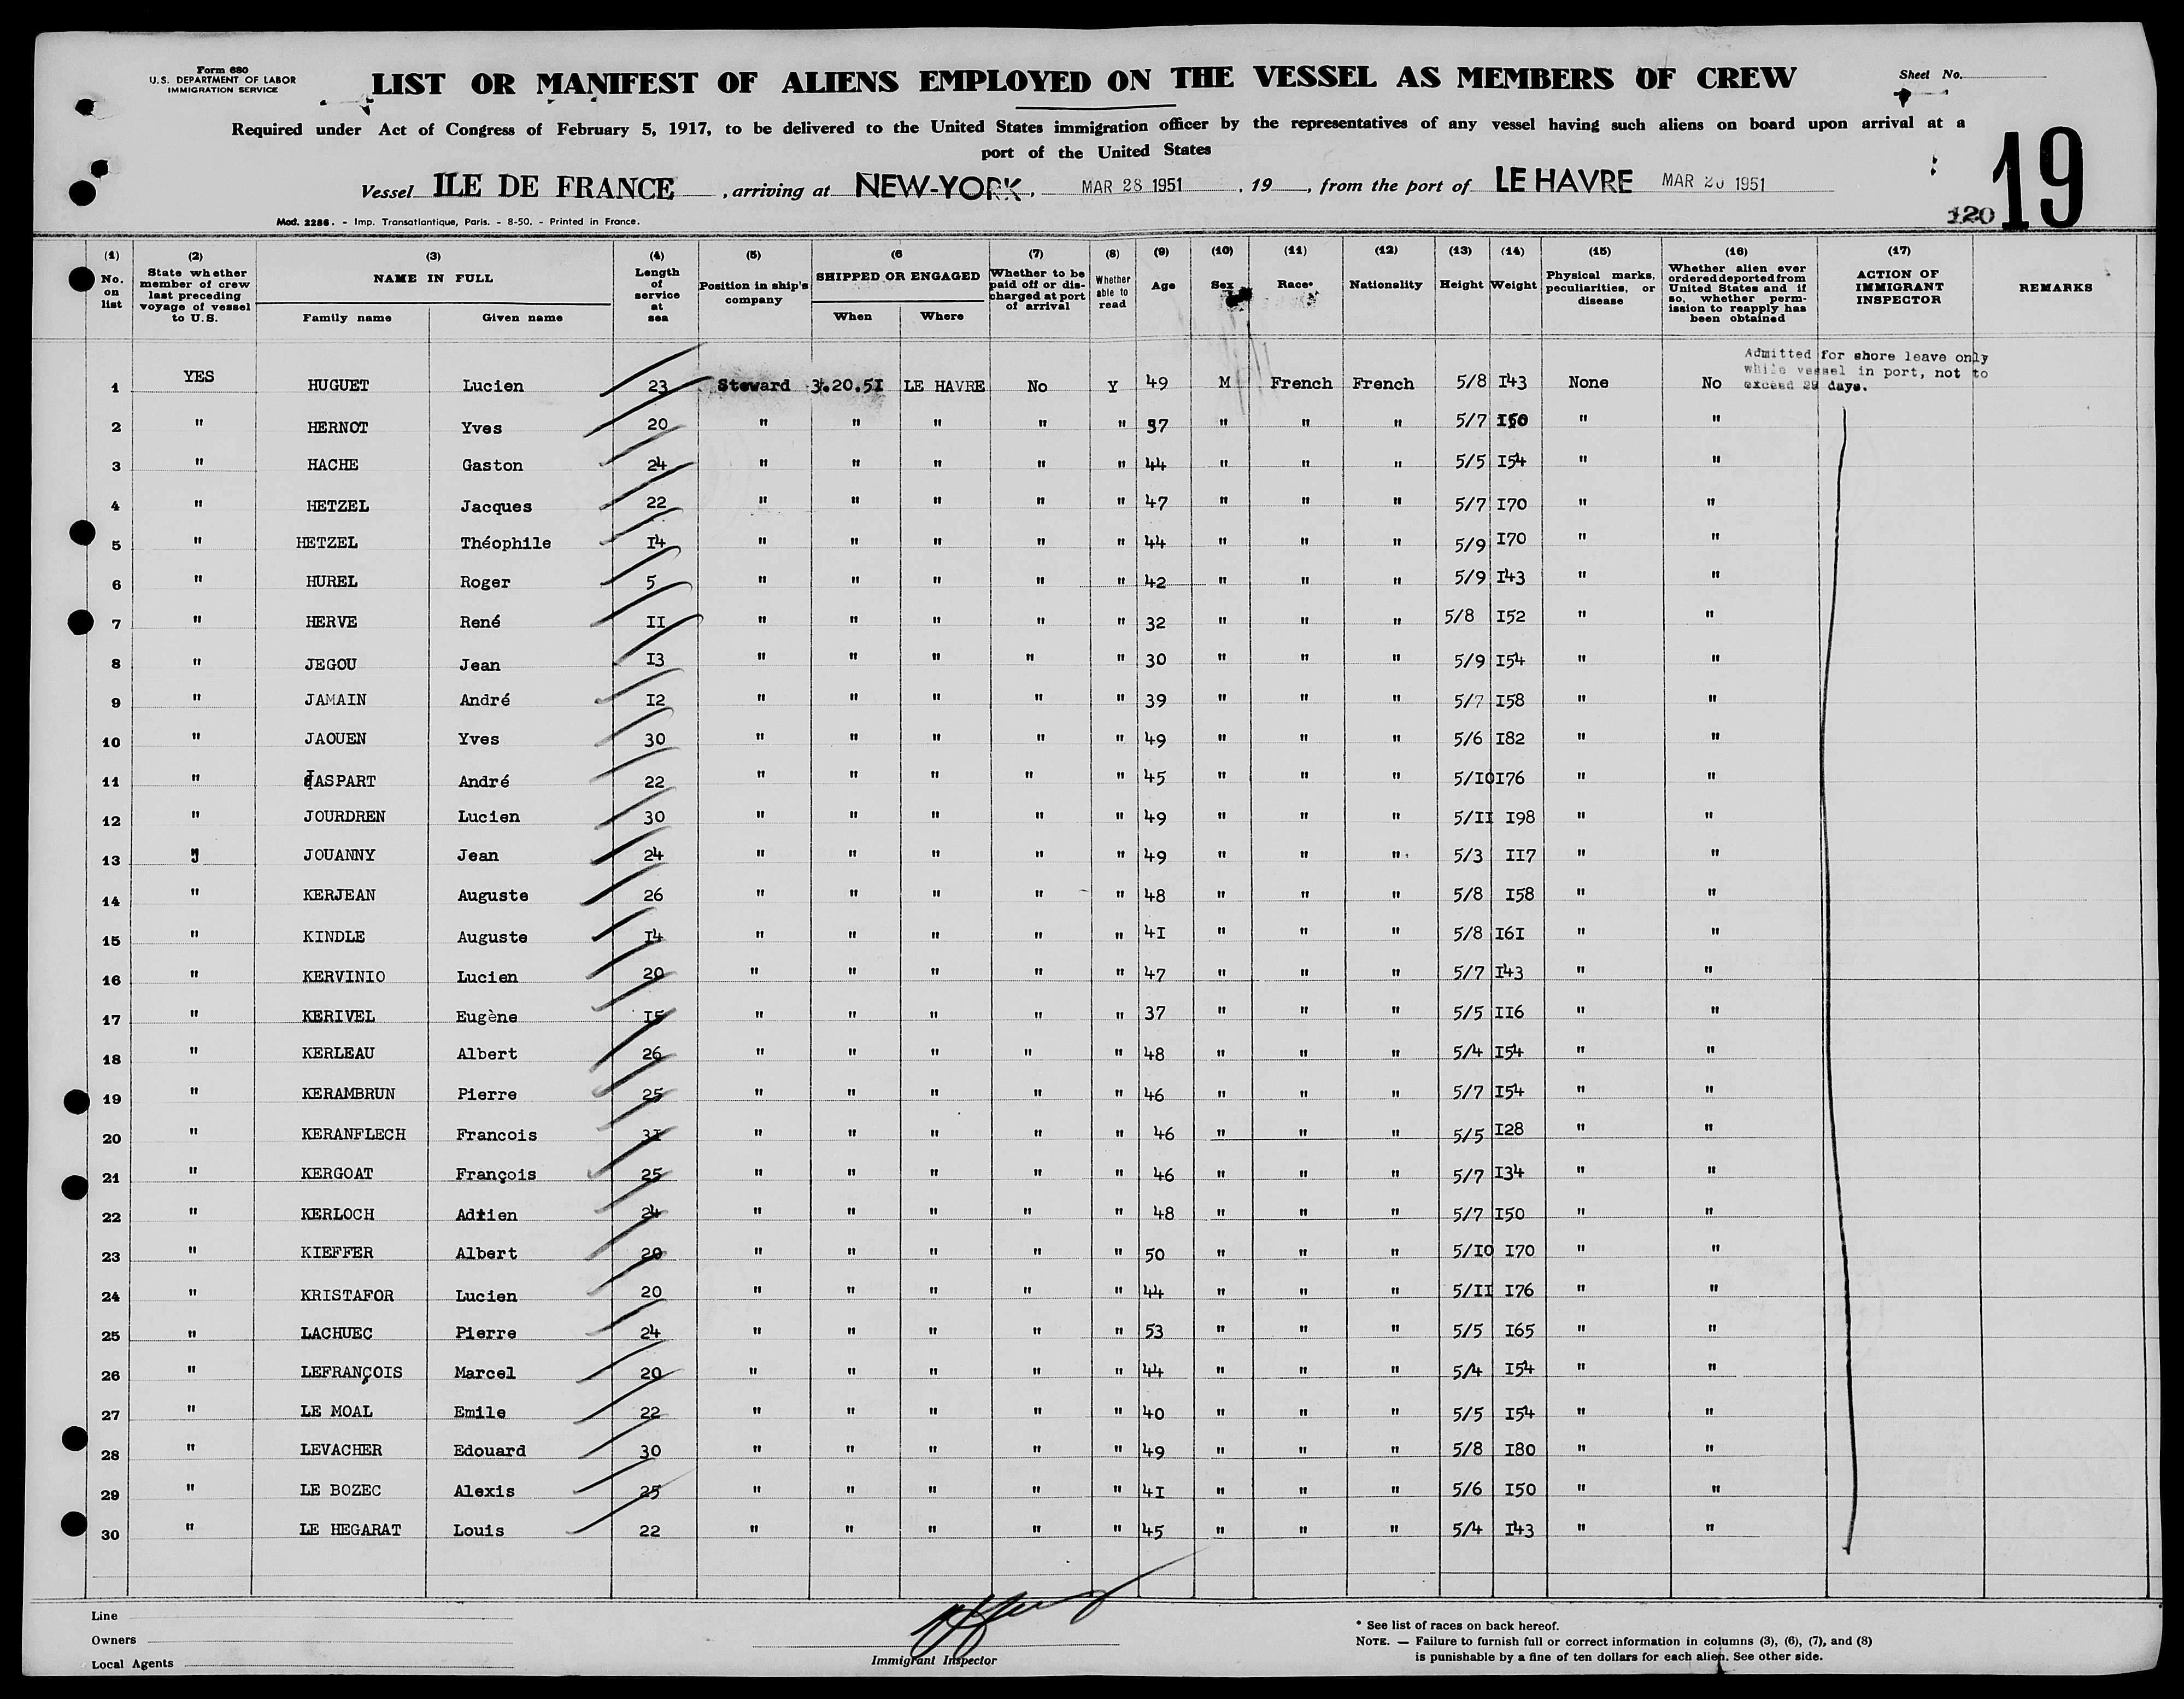 Form 680
U.S. DEPARTMENT OF LABOR
IMMIGRATION SERVICE
LIST OR MANIFEST OF ALIENS EMPLOYED ON THE VESSEL AS MEMBERS OF CREW
Sheet No.
Required under Act of Congress of February 5, 1917, to be delivered to the United States immigration officer by the representatives of any vessel having such aliens on board upon arrival at a
port of the United States
19
Vessel ILE DE FRANCE, arriving at NEW-YORK, MAR 28 1951, 19, from the port of LE HAVRE MAR 20 1951
120
Mod. 2286. - Imp. Transatlantique, Paris. - 8-50. - Printed in France.
(1) No. on list (2) State whether member of crew last preceding voyage of vessel to U.S. (3) NAME IN FULL Family name Given name (4) Length of service at sea (5) Position in ship's company (6 SHIPPED OR ENGAGED When Where (7) Whether to be paid off or discharged at port of arrival (8) Whether able to read (9) Age (10) Sex (11) Race* (12) Nationality (13) Height (14) Weight (15) Physical marks, peculiarities, or disease (16) Whether alien ever ordered deported from United States and if so, whether permission to reapply has been obtained (17) ACTION OF IMMIGRANT INSPECTOR REMARKS
Admitted for shore leave only
while vessel in port, not to
exceed 29 days.
1 YES HUGUET Lucien 23 Steward 3.20.5I LE HAVRE No Y 49 M French French 5/8 I43 None No
2 " HERNOT Yves 20 " " " " " 37 " " " 5/7 I60 " "
3 " HACHE Gaston 24 " " " " " 44 " " " 5/5 I54 " "
4 " HETZEL Jacques 22 " " " " " 47 " " " 5/7 I70 " "
5 " HETZEL Théophile I4 " " " " " 44 " " " 5/9 I70 " "
6 " HUREL Roger 5 " " " " " 42 " " " 5/9 I43 " "
7 " HERVE René II " " " " " 32 " " " 5/8 I52 " "
8 " JEGOU Jean I3 " " " " " 30 " " " 5/9 I54 " "
9 " JAMAIN André I2 " " " " " 39 " " " 5/7 I58 " "
10 " JAOUEN Yves 30 " " " " " 49 " " " 5/6 I82 " "
11 " JASPART André 22 " " " " " 45 " " " 5/I0 I76 " "
12 " JOURDREN Lucien 30 " " " " " 49 " " " 5/II I98 " "
13 " JOUANNY Jean 24 " " " " " 49 " " " 5/3 II7 " "
14 " KERJEAN Auguste 26 " " " " " 48 " " " 5/8 I58 " "
15 " KINDLE Auguste I4 " " " " " 4I " " " 5/8 I6I " "
16 " KERVINIO Lucien 20 " " " " " 47 " " " 5/7 I43 " "
17 " KERIVEL Eugène I5 " " " " " 37 " " " 5/5 II6 " "
18 " KERLEAU Albert 26 " " " " " 48 " " " 5/4 I54 " "
19 " KERAMBRUN Pierre 25 " " " " " 46 " " " 5/7 I54 " "
20 " KERANFLECH Francois 3I " " " " " 46 " " " 5/5 I28 " "
21 " KERGOAT François 25 " " " " " 46 " " " 5/7 I34 " "
22 " KERLOCH Adrien 24 " " " " " 48 " " " 5/7 I50 " "
23 " KIEFFER Albert 20 " " " " " 50 " " " 5/I0 I70 " "
24 " KRISTAFOR Lucien 20 " " " " " 44 " " " 5/II I76 " "
25 " LACHUEC Pierre 24 " " " " " 53 " " " 5/5 I65 " "
26 " LEFRANÇOIS Marcel 20 " " " " " 44 " " " 5/4 I54 " "
27 " LE MOAL Emile 22 " " " " " 40 " " " 5/5 I54 " "
28 " LEVACHER Edouard 30 " " " " " 49 " " " 5/8 I80 " "
29 " LE BOZEC Alexis 25 " " " " " 4I " " " 5/6 I50 " "
30 " LE HEGARAT Louis 22 " " " " " 45 " " " 5/4 I43 " "
Line
Owners
Local Agents
Immigrant Inspector
* See list of races on back hereof.
NOTE. — Failure to furnish full or correct information in columns (3), (6), (7), and (8)
is punishable by a fine of ten dollars for each alien. See other side.